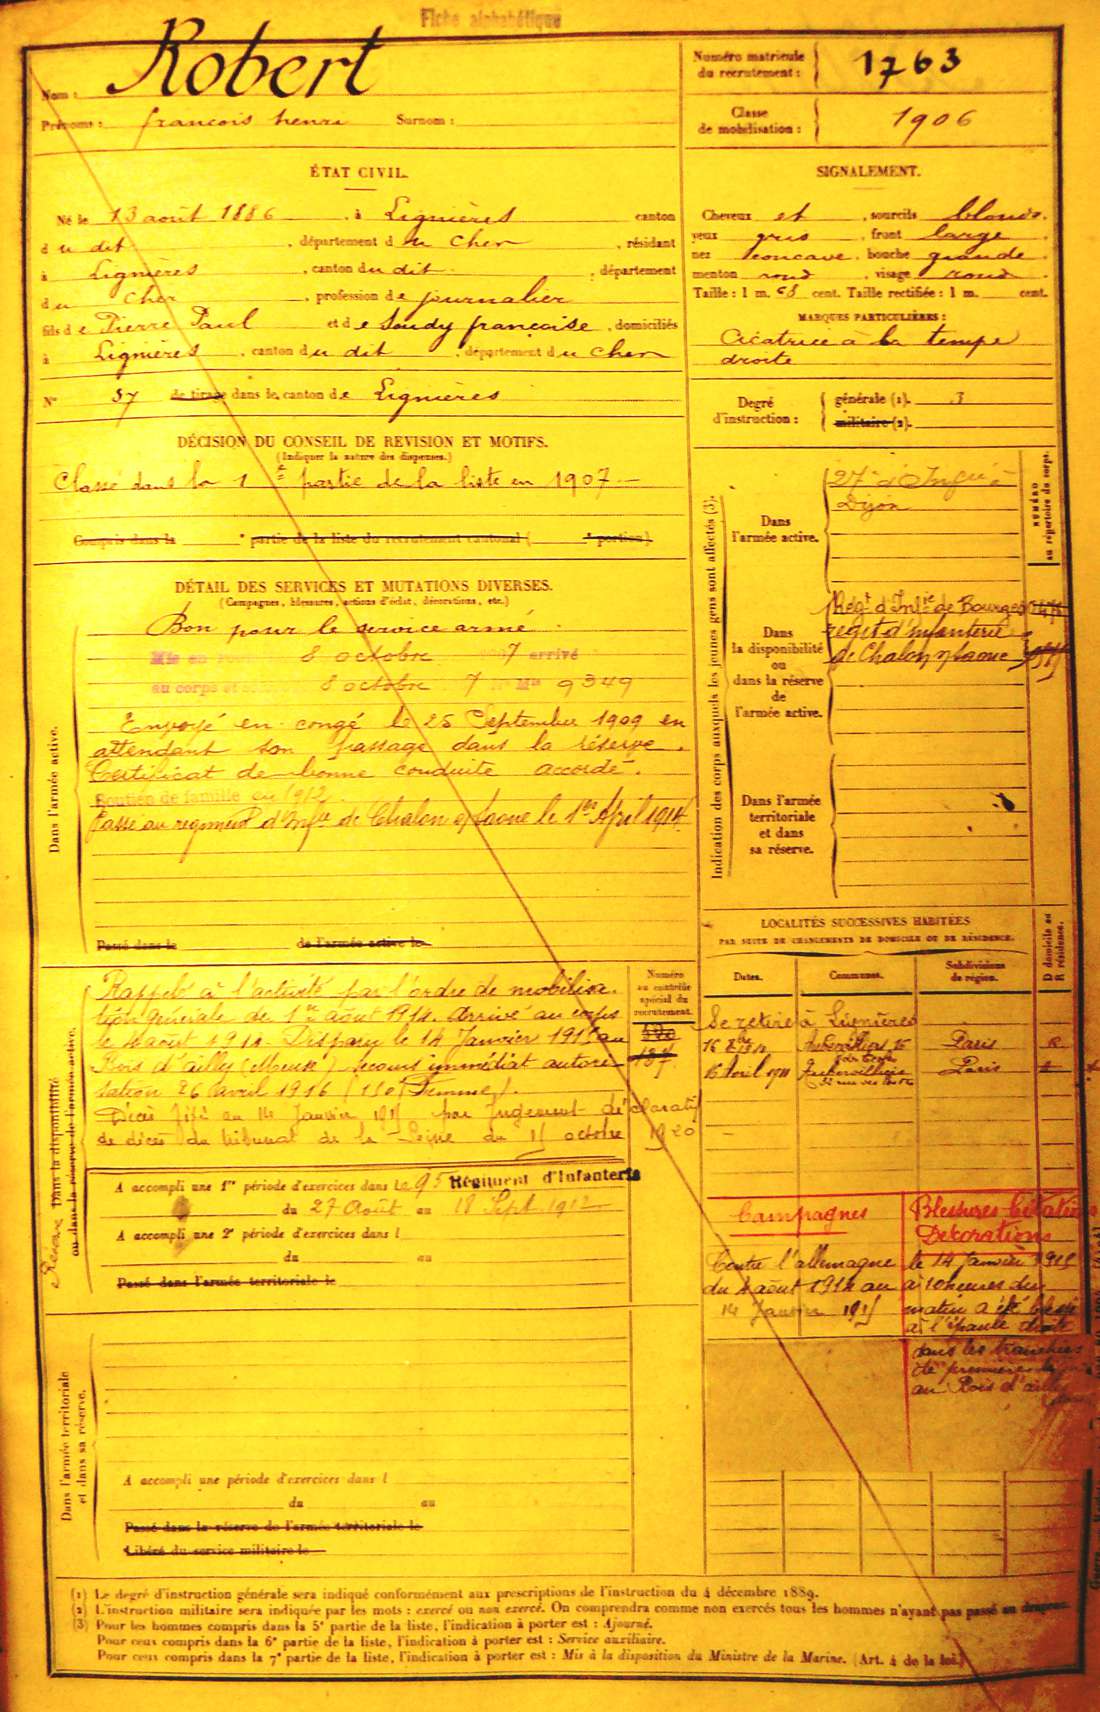 Fiche alphabétique
Nom : Robert
Prénoms : francois henri Surnom :
Numéro matricule du recrutement : 1763
Classe de mobilisation : 1906
ÉTAT CIVIL.
Né le 13 août 1886, à Lignières canton
du dit, département du Cher, résidant
à Lignières, canton du dit, département
du Cher, profession de journalier
fils de Pierre Paul et de Soudy françoise, domiciliés
à Lignières, canton du dit, département du Cher
N° 37 de tirage dans le canton de Lignières
SIGNALEMENT.
Cheveux et, sourcils blonds.
yeux gris, front large.
nez concave, bouche grande.
menton rond, visage rond.
Taille : 1 m. 68 cent. Taille rectifiée : 1 m. cent.
MARQUES PARTICULIÈRES :
Cicatrice à la tempe
droite
Degré d'instruction : générale (1). 3
militaire (2).
DÉCISION DU CONSEIL DE REVISION ET MOTIFS.
(Indiquer la nature des dispenses.)
Classé dans la 1e partie de la liste en 1907.
Compris dans la partie de la liste du recrutement cantonal ( portion).
DÉTAIL DES SERVICES ET MUTATIONS DIVERSES.
(Campagnes, blessures, actions d'éclat, décorations, etc.)
Dans l'armée active.
Bon pour le service armé
Mis en 8 octobre 1907 arrivé
au corps 8 octobre 7 N° Mle 9349
Envoyé en congé le 25 Septembre 1909 en
attendant son passage dans la réserve.
Certificat de bonne conduite accordé.
Soutien de famille en 1912.
Passé au régiment d'Infie de Chalon s/ Saone le 1er April 1914
Passé dans le de l'armée active le
Indication des corps auxquels les jeunes gens sont affectés (3).
NUMÉRO au répertoire du corps.
Dans l'armée active.
27e d'Infie à
Dijon
Dans la disponibilité ou dans la réserve de l'armée active.
Régt d'Infie de Bourges
regit d'infanterie
de Chalon s/ Saone
Dans l'armée territoriale et dans sa réserve.
LOCALITÉS SUCCESSIVES HABITÉES
PAR SUITE DE CHANGEMENTS DE DOMICILE OU DE RÉSIDENCE.
Dates. Communes. Subdivisions de région. D domicile ou R résidence.
Se retire à Lignières
Aubervilliers Paris R
16 Avril 1911 Aubervilliers Paris
Dans la disponibilité ou dans la réserve de l'armée active.
Réserve
Numéro au contrôle spécial du recrutement.
Rappelé à l'activité par l'ordre de mobilisa-
tion générale de 1er août 1914. Arrivé au corps
le 4 août 1914. Disparu le 14 Janvier 1915 au
Bois d'ailly (Meuse) Secours immédiat autori-
sation 26 avril 1916 (150f Femme).
Décès fixé au 14 Janvier 1915 par Jugement déclaratif
de décès du tribunal de la Seine du 15 octobre 1920
A accompli une 1re période d'exercices dans le 95 Régiment d'Infanterie
du 27 Août au 18 Sept 1912
A accompli une 2e période d'exercices dans l
du au
Passé dans l'armée territoriale le
Campagnes
Contre l'allemagne
du 4 août 1914 au
14 Janvier 1915
Blessures Citations
Décorations
le 14 Janvier 1915
à 10 heures du
matin a été blessé
à l'épaule droite
dans les tranchées
de première
au Bois d'ailly
Dans l'armée territoriale et dans sa réserve.
A accompli une période d'exercices dans l
du au
Passé dans la réserve de l'armée territoriale le
Libéré du service militaire le
(1) Le degré d'instruction générale sera indiqué conformément aux prescriptions de l'instruction du 4 décembre 1889.
(2) L'instruction militaire sera indiquée par les mots : exercé ou non exercé. On comprendra comme non exercés tous les hommes n'ayant pas passé au drapeau.
(3) Pour les hommes compris dans la 5e partie de la liste, l'indication à porter est : Ajourné.
Pour ceux compris dans la 6e partie de la liste, l'indication à porter est : Service auxiliaire.
Pour ceux compris dans la 7e partie de la liste, l'indication à porter est : Mis à la disposition du Ministre de la Marine. (Art. 4 de la loi.)